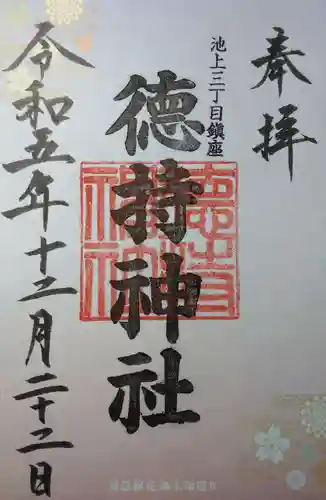 奉拝
池上三丁目鎮座
徳持神社
令和五年十二月二十二日